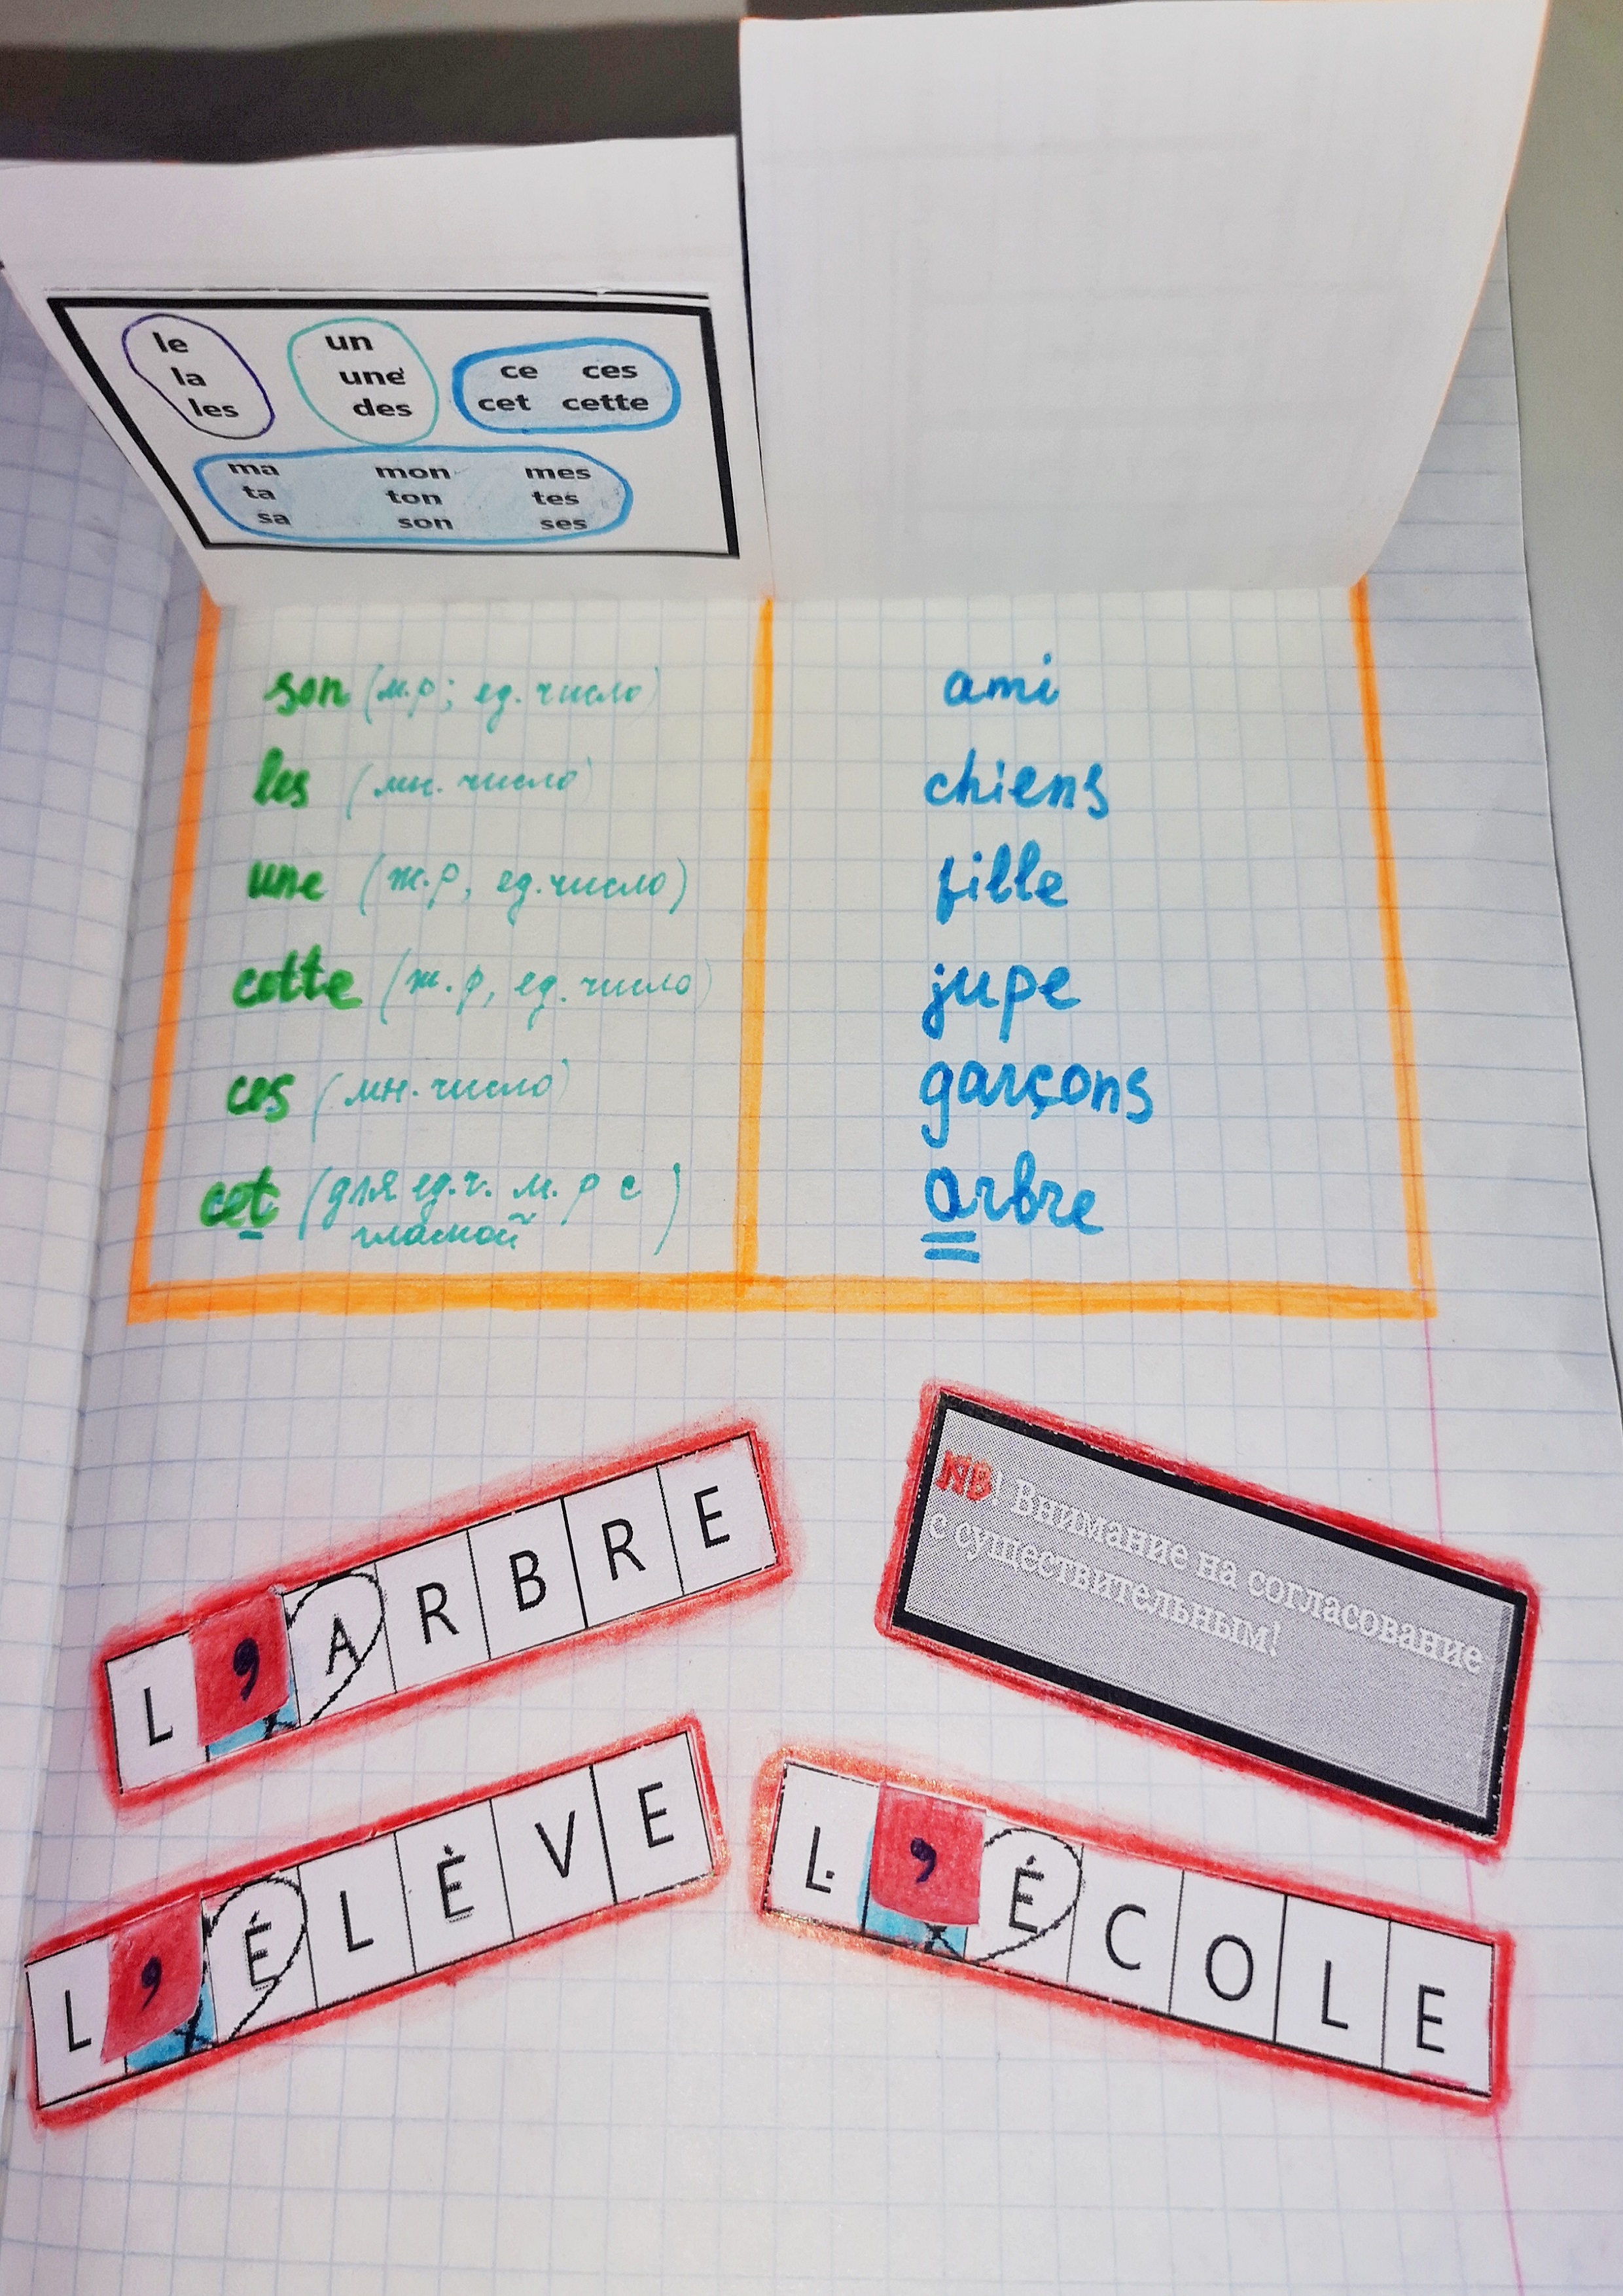 le
la
les
un
une
des
ce ces
cet cette
ma mon mes
ta ton tes
sa son ses
son (м.р; ед. число) ami
les (мн. число) chiens
une (ж.р, ед. число) fille
cette (ж.р, ед. число) jupe
ces (мн. число) garçons
cet (для ед.ч. м. р с arbre
гласной)
L'ARBRE
NB! Внимание на согласование
с существительным!
L'ÉLÈVE
L'ÉCOLE